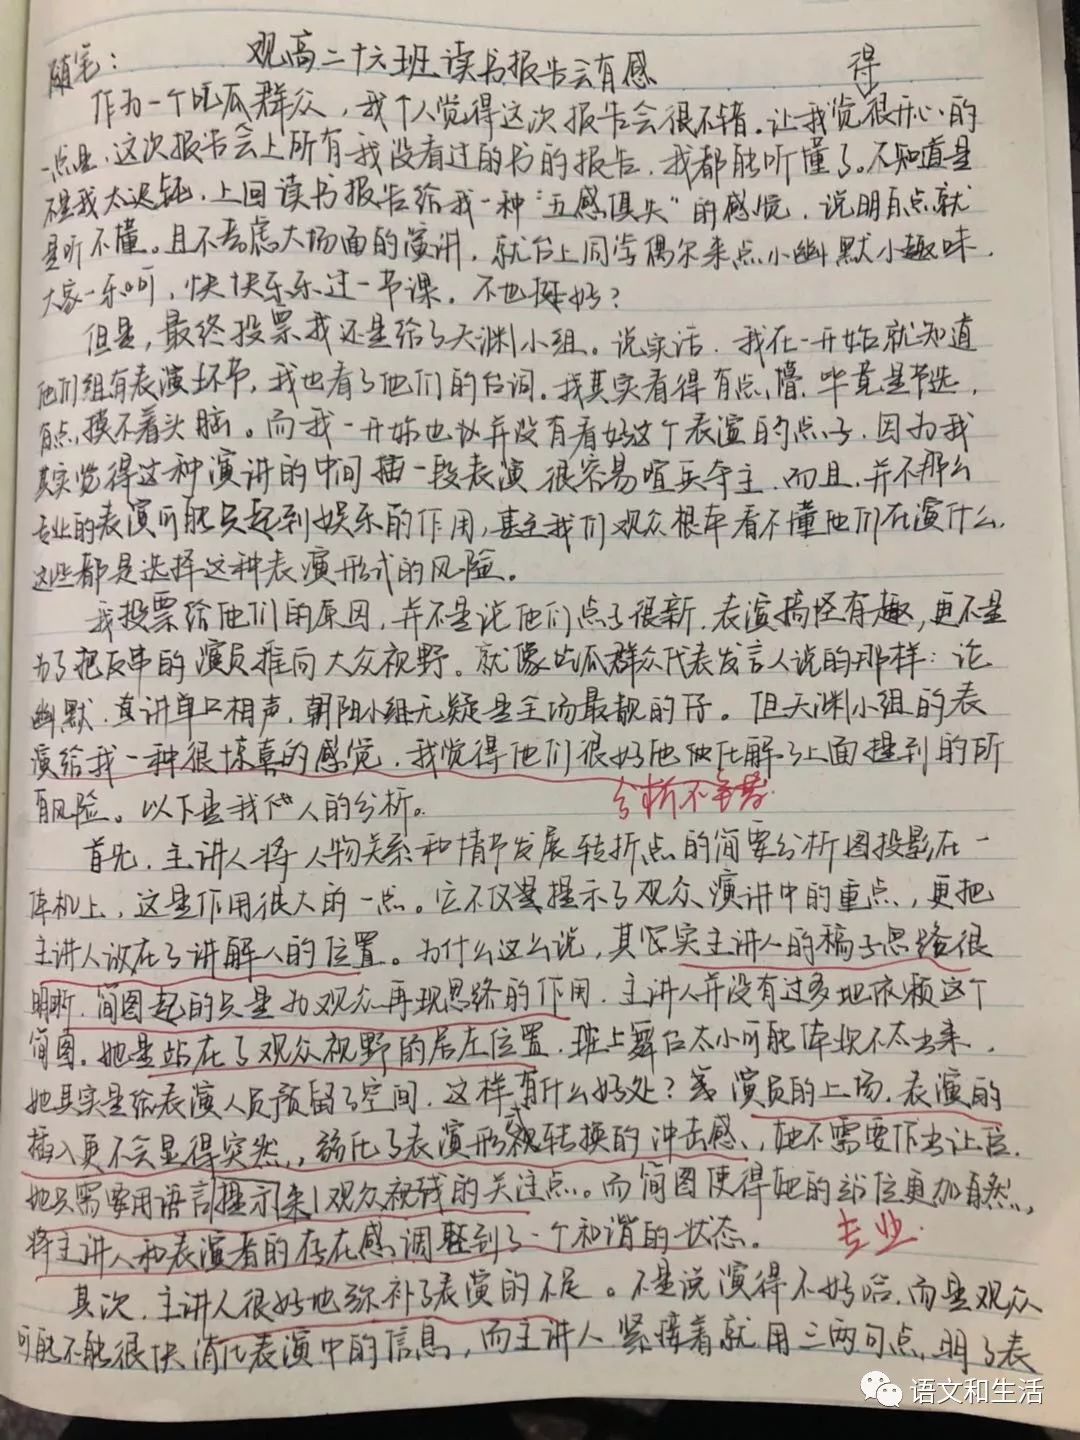 随笔：
观高二十六班读书报告会有感
得
作为一个吃瓜群众，我个人觉得这次报告会很不错。让我觉很开心的
一点是，这次报告会上所有我没看过的书的报告，我都能听懂了。不知道是
不是我太迟钝，上回读书报告给我一种“五感俱失”的感觉，说明白点就
是听不懂。且不考虑大场面的演讲，就台上同学偶尔来点小幽默小趣味，
大家一乐呵，快快乐乐过一节课。不也挺好？
但是，最终投票我还是给了天渊小组。说实话，我在一开始就知道
他们组有表演环节，我也看了他们的台词。我其实看得有点懵，毕竟是节选，
有点摸不着头脑。而我一开始也并没有看好这个表演的点子，因为我
其实觉得这种演讲的中间插一段表演很容易喧宾夺主，而且，并不那么
专业的表演可能只起到娱乐的作用，甚至我们观众根本看不懂他们在演什么，
这些都是选择这种表演形式的风险。
我投票给他们的原因，并不是说他们点子很新，表演搞怪有趣，更不是
为了把反串的演员推向大众视野。就像吃瓜群众代表发言人说的那样：论
幽默，真讲单口相声，朝阳小组无疑是全场最靓的仔。但天渊小组的表
演给我一种很惊喜的感觉，我觉得他们很好地化解了上面提到的所
有风险。以下是我个人的分析。
分析不错
首先，主讲人将人物关系和情节发展转折点的简要分析图投影在一
体机上，这是作用很大的一点。它不仅是提示了观众演讲中的重点，更把
主讲人放在了讲解人的位置。为什么这么说，其实主讲人的稿子思路很
明晰，简图起的只是为观众再现思绪的作用，主讲人并没有过多地依赖这个
简图。她是站在了观众视野的居左位置，班上舞台太小可能体现不太出来，
她其实是给表演人员预留了空间，这样有什么好处？演员的上场，表演的
插入更不会显得突然，弱化了表演形式转换的冲击感，她不需要作出让位，
她只需要用语言提示来引观众视线的关注点。而简图使得她的站位更加自然，
将主讲人和表演者的存在感调整到了一个和谐的状态。
专业
其次，主讲人很好地弥补了表演的不足。不是说演得不好哈，而是观众
可能不能很快消化表演中的信息，而主讲人紧接着就用三两句点明了表
语文和生活